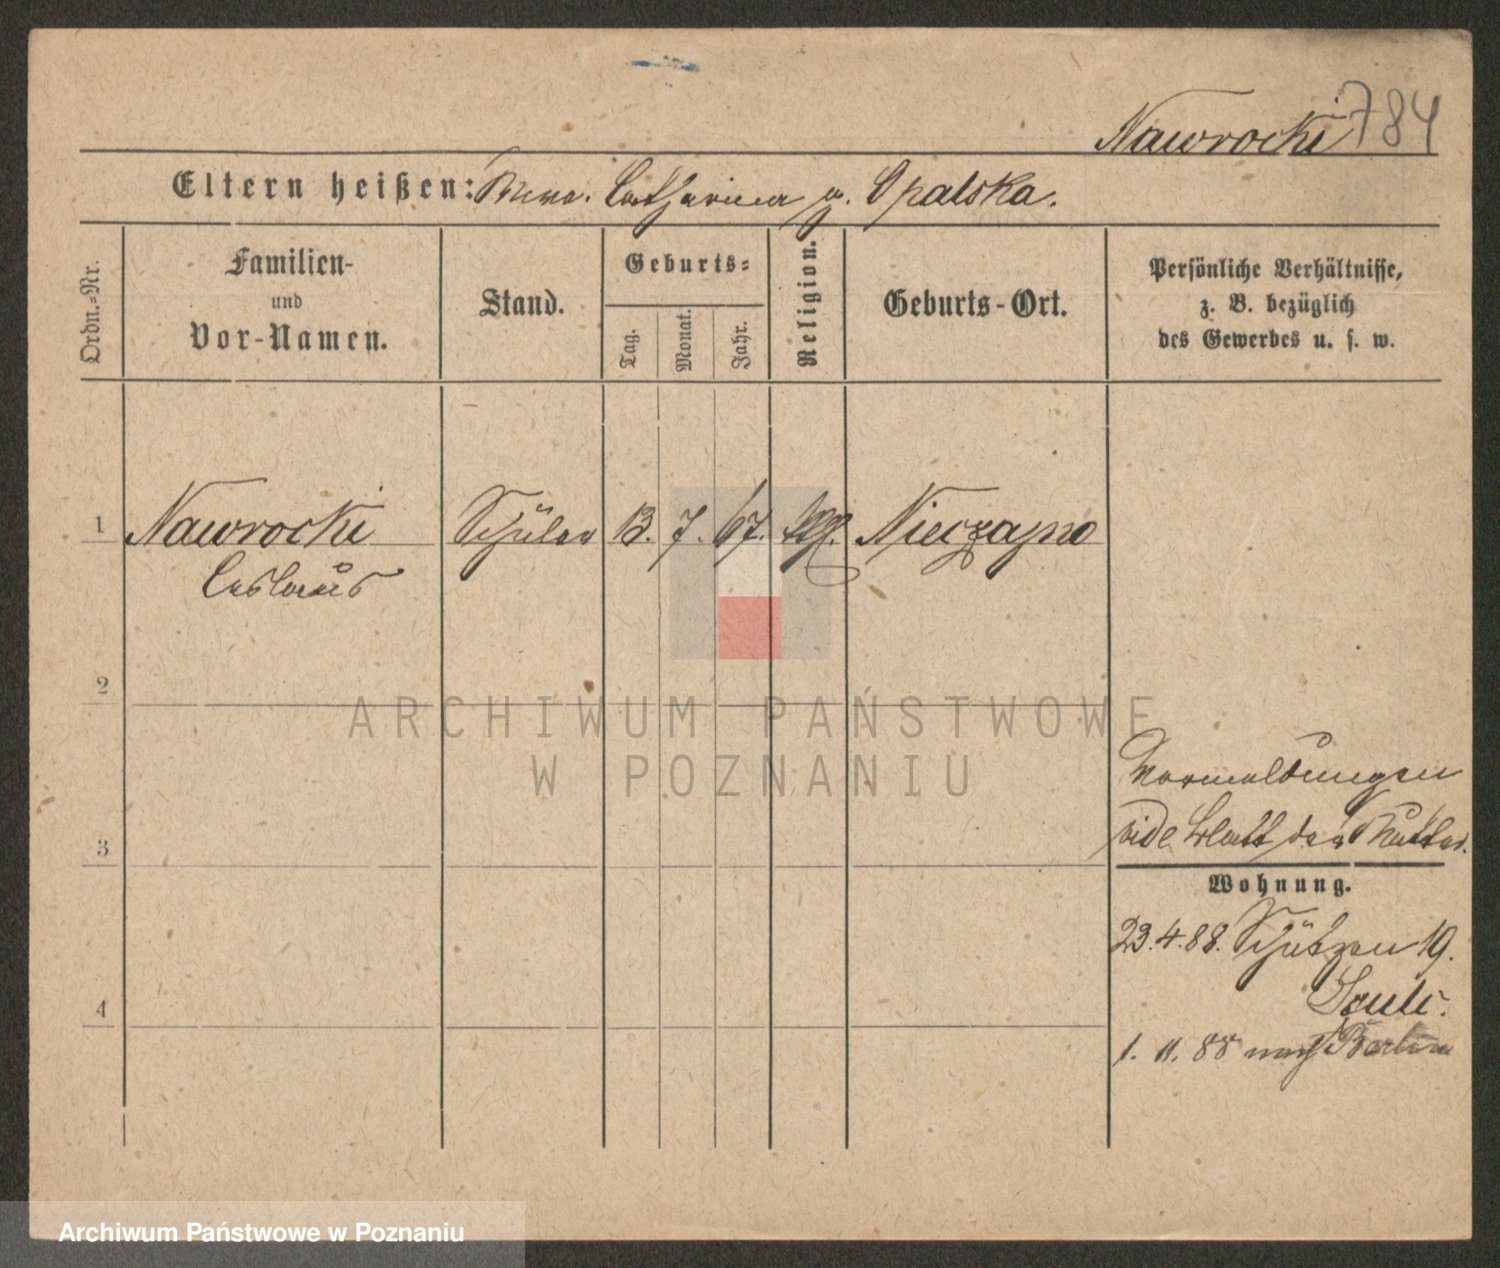 Nawrocki 784
Eltern heißen: Catharina g. Opalska.
Ordn.-Nr.
Familien-
und
Vor-Namen.
Stand.
Geburts-
Tag.
Monat.
Jahr.
Religion.
Geburts-Ort.
Persönliche Verhältnisse,
z. B. bezüglich
des Gewerbes u. s. w.
1 Nawrocki Schüler 13. 7. 67. Nieczajno
Ceslaus
2
ARCHIWUM PAŃSTWOWE
W POZNANIU
Vormeldungen
3 vide Blatt der Mutter.
Wohnung.
23. 4. 88. Schützen 19.
4
1. 11. 88 nach Berlin
Archiwum Państwowe w Poznaniu